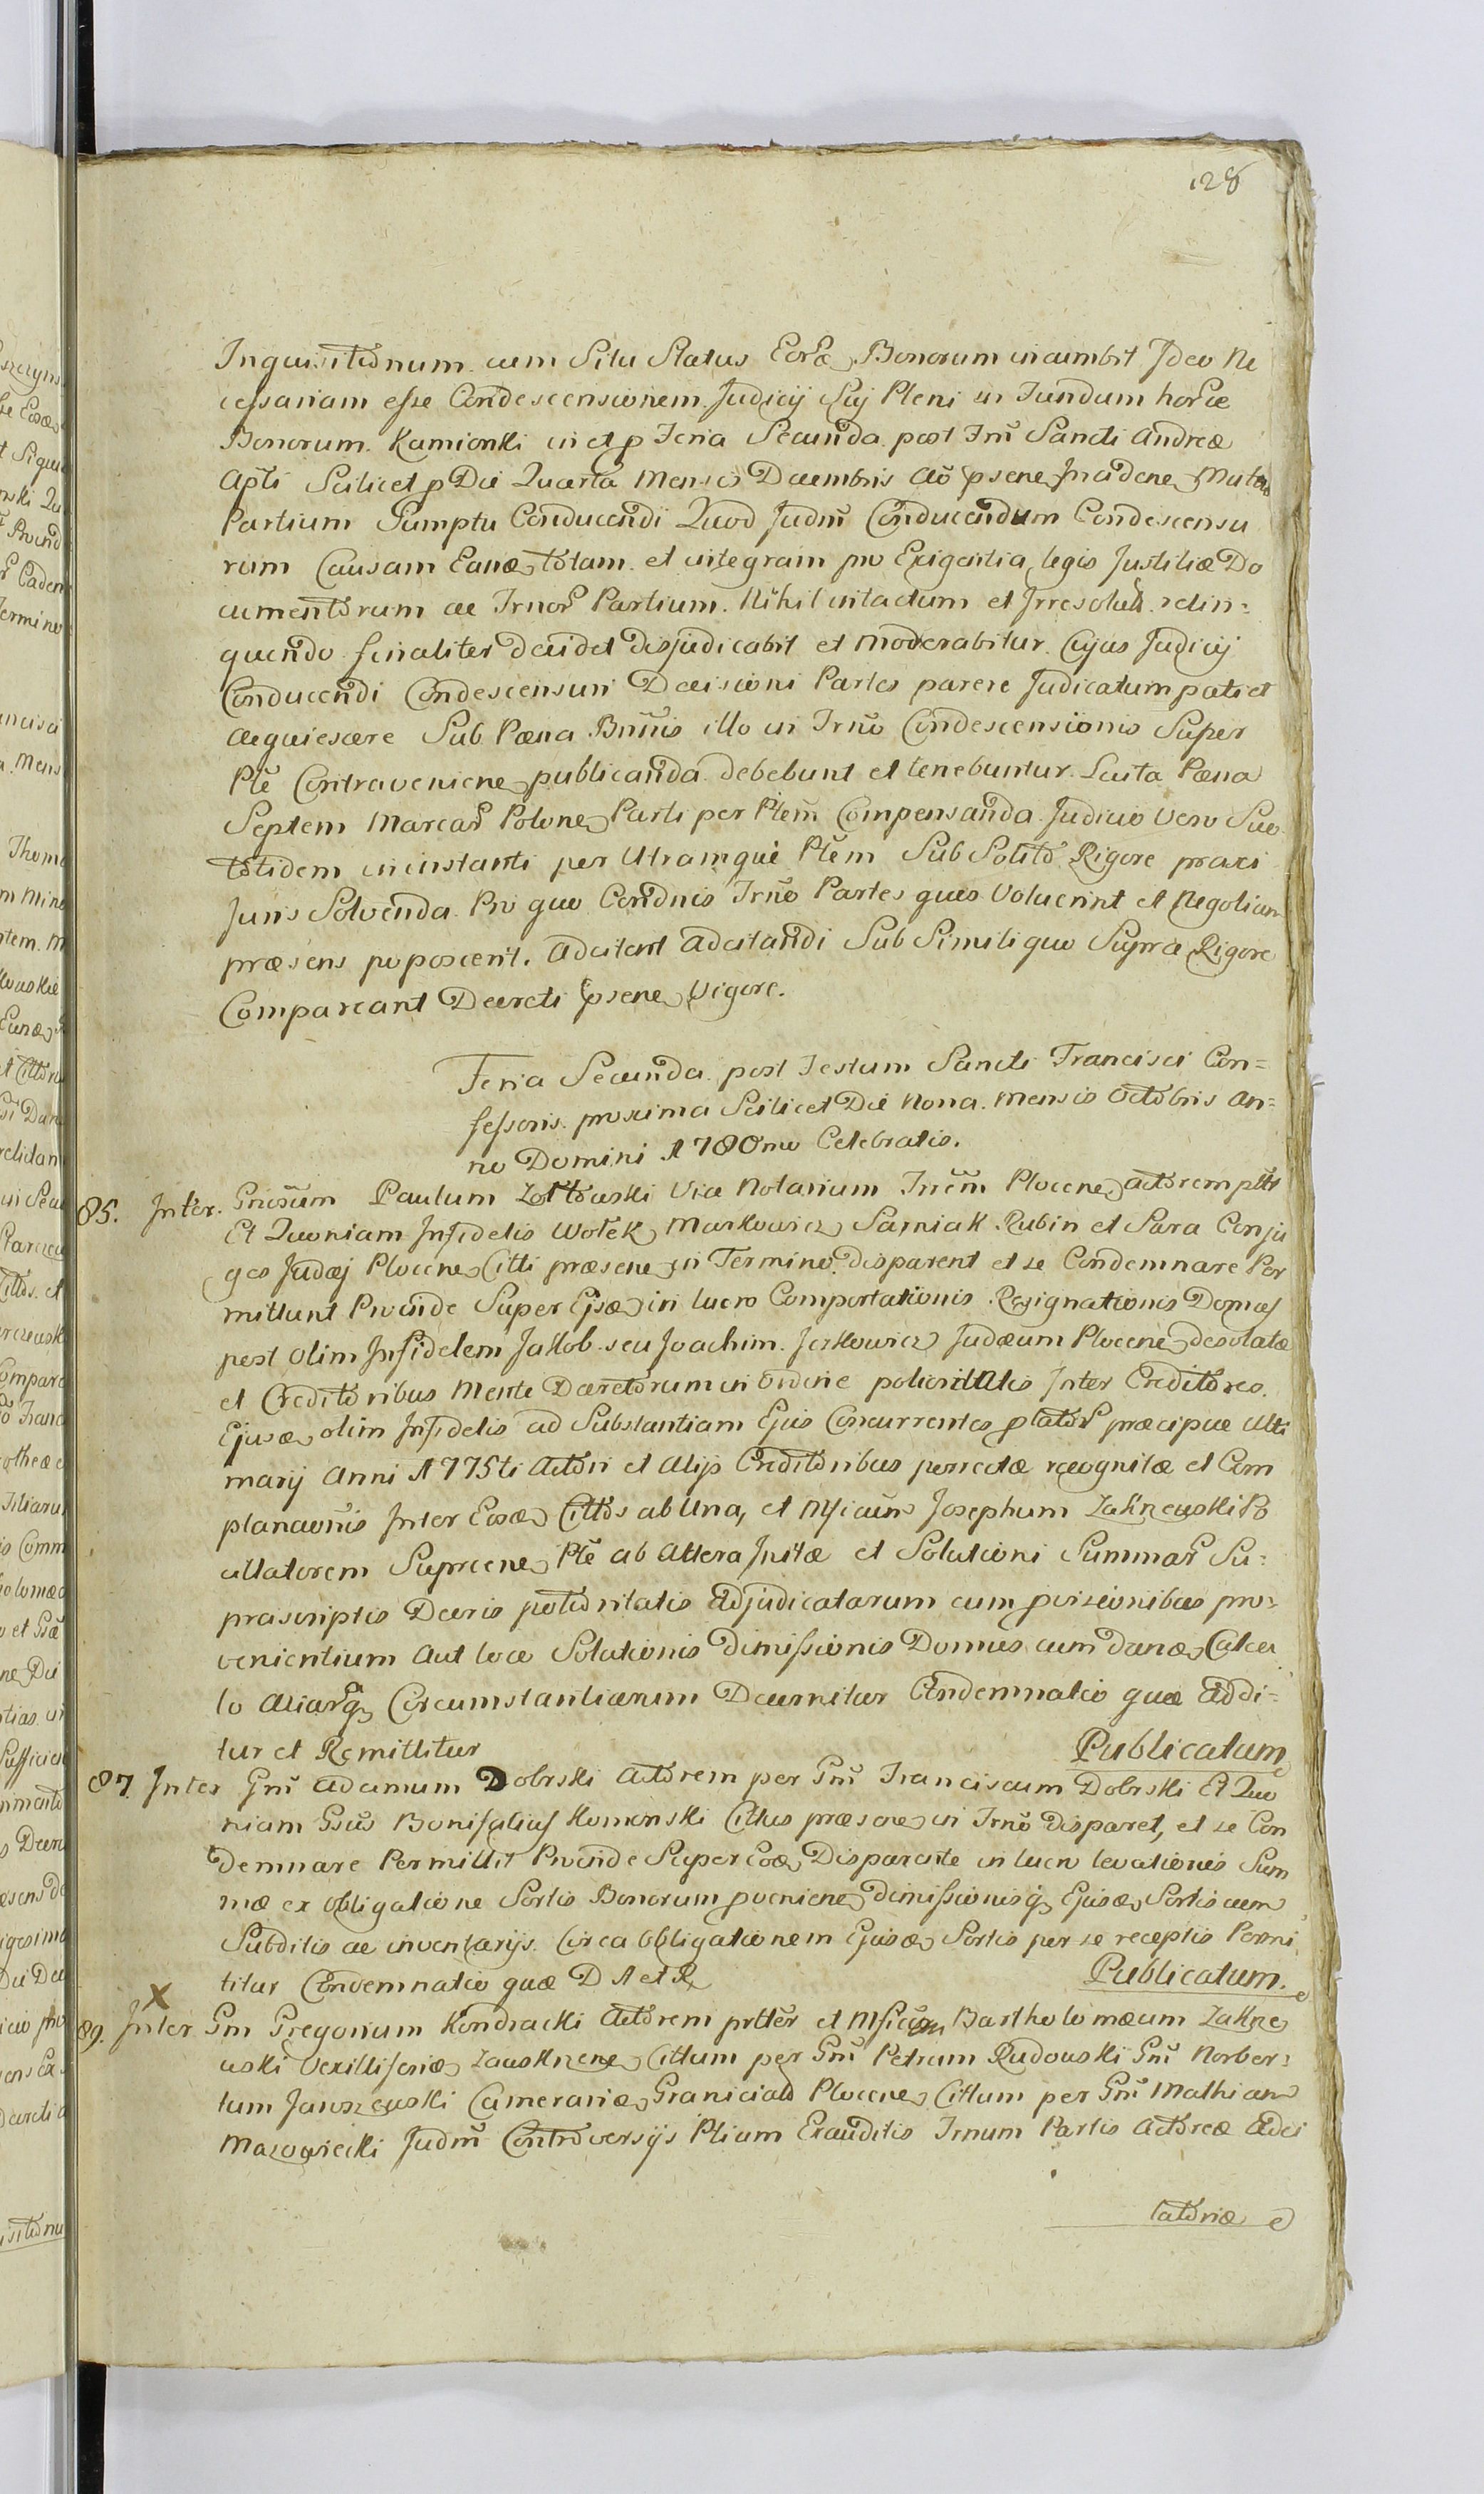 128
Inquisitionum cum Situ Status Eor̃ Bonorum incumbit Ideo Ne
cessariam esse Condescensionem Judicij Sui Pleni in Fundum hor̃
Bonorum Kamionki in et p Feria Secunda post Fm̃ Sancti Andreæ
Apl̃i Scilicet p Die Quarta Mensis Decembris Aõ psene Incidene Mutuo
Partium Sumptu Conducendi Quod Judm̃ Conducendum Condescensu
rum Causam Eanæ totam et integram pro Exigentia legis Justitiæ Do
cumentorum ac Trnor̃ Partium Nihil intactum et Irresolut̃ relin=
quendo finaliter decidet disjudicabit et moderabitur Cujus Judicij
Conducendi Condescensuri Decisioni Partes parere Judicatum pati et
acquiescere Sub Pæna Bñnis illo in Trnõ Condescensionis Super
Ptẽ Contraveniene publicanda debebunt et tenebuntur Luita Pæna
Septem Marcar̃ Polone Parti per Ptem̃ Compensanda Judicio Vero Suo
totidem in instanti per Utramque Ptẽm Sub Solito Rigore praxi
Juris Solvenda Pro quo Condnis Trnõ Partes quos Voluerint et Negotium
præsens poposcerit. Adcitent Adcitandi Sub Simili quo Supra Rigore
Compareant Decreti psene Vigore.
Feria Secunda post Festum Sancti Francisci Con=
fessoris proxima Scilicet Die Nona Mensis Octobris An=
no Domini 1780mo Celebratis.
85. Inter Gñosum Paulum Zottowski Vice Notarium Trr̃em Plocene actorem pttr
Et Quoniam Infidelis Wolek Markowicz Sarniak Rubin et Sara Conju
ges Judæj Plocene Citti præsene in Termino disparent et se Condemnare Per
mittunt Proinde Super Ejsæ in lucro Comportationis Resignationis Domus
post olim Infidelem Jakob seu Joachim Jerkowicz Judæum Plocene desolatæ
et Creditoribus Mente Decretorum in Ordine potioritatis Inter Creditores
Ejusæ olim Infidelis ad Substantiam Ejus Concurrentes plator̃ præcipue Ulti
marij Anni 1775ti Actori et Alijs Creditoribus perrectæ recognitæ et Com
planaõnis Inter Eosæ Cittos ab Una, et Mficum Josephum Zakrzewski Po
cillatorem Supreene Ptẽ ab Altera Initæ et Solutioni Summar̃ Su=
prascriptis Decris potioritatis Adjudicatarum cum pvisionibus pro=
venientium aut loco Solutionis dimissionis Domus cum danæ Calcu
lo Aliarq Circumstantiarum Decernitur Condemnatio quæ Addi=
tur et Remittitur Publicatum
87. Inter Gm̃ Adamum Dobrski Actorem per Gm̃ Franciscum Dobrski Et Quo
niam Gsũs Bonifatius Komorski Cittus præsene in Trnõ disparet, et se Con
demnare Permittit Proinde Super Eoæ Disparente in lucro levationis Sum
mæ ex Obligatione Sortis Bonorum pveniene dimissionisq Ejusæ Sortis cum
Subditis ac inventarijs Circa Obligationem Ejusæ Sortis per se receptis Permi
titur Condemnatio quæ D A et R Publicatum.
X
89. Inter Gm Gregorium Kondracki Actorem prttẽr et Mficum Bartholomæum Zakrze
wski Vexilliferiæ Zawskrzene Cittum per Gm̃ Petrum Rudowski Gm̃ Norber=
tum Janiszewski Camerariæ Granicialẽ Plocene Cittum per Gm̃ Mathiam
Mazowiecki Judm̃ Controversijs Ptium Exauditis Trnum Partis Actoreæ Adci
tatoriæ